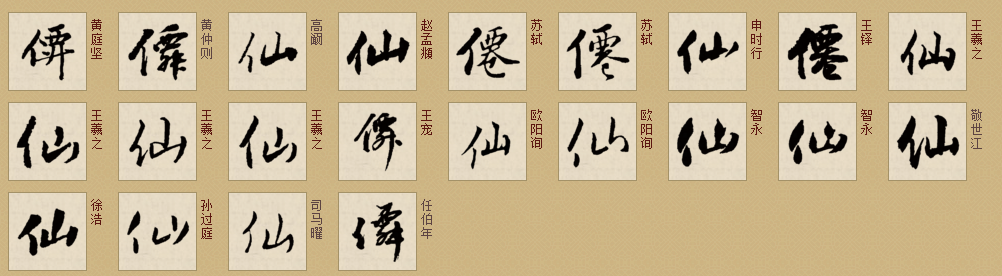 黄庭坚
黄仲则
仙 
仙 赵孟頫
僊 苏轼
僊 苏轼
仙 申时行
僊 王铎
仙 王羲之
仙 王羲之
仙 王羲之
仙 王羲之
王宠
仙 欧阳询
仙 欧阳询
仙 智永
仙 智永
仙 敬世江
仙 徐浩
仙 孙过庭
仙 司马曜
任伯年